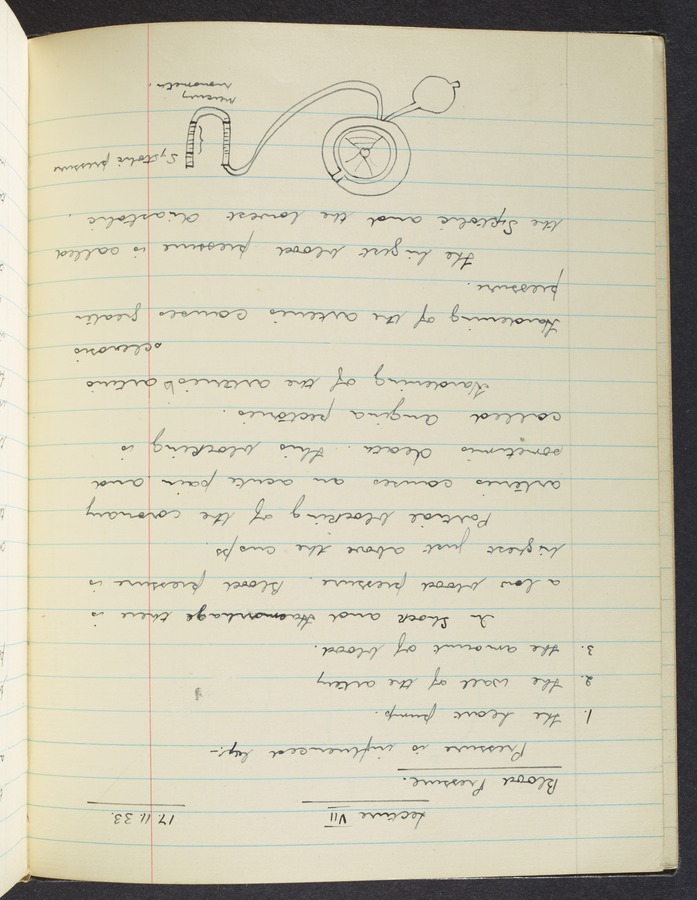 Lecture VII 17.11.33.
Blood Pressure.
Pressure is influenced by:-
1. the heart pump.
2. the wall of the artery
3. the amount of blood.
In Shock and Haemorrhage there is
a low blood pressure. Blood pressure is
highest just above the cusps.
Partial blocking of the coronary
arteries causes an acute pain and
sometimes death. this blocking is
called angina pectoris.
Hardening of the arteries arterio
sclerosis
Hardening of the arteries causes greater
pressure.
the highest blood pressure is called
the Systolic and the lowest diastolic.
Systolic pressure
mercury
manometer.